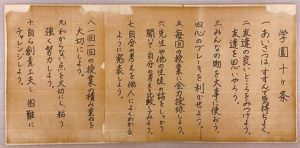 学園十ヶ条
一 あいさつは、すすんで気持ちよく。
二 友達の良いところをみつけよう。
友達を思いやろう。
三 みんなの物を大事に使おう。
四 心のブレーキを利かせよう。
五 毎回の授業に全力投球しよう。
六 先生や他の生徒の話をしっかり
聞いて自分の考えと比較してみよう。
七 自分の考えを他人によくわかる
ように発表しよう。
八 一回一回の授業の積み重ねを
大切にしよう。
九 わからない点を大切にし、粘り
強く努力しよう。
十 自ら創意工夫し、困難に
チャレンジしよう。